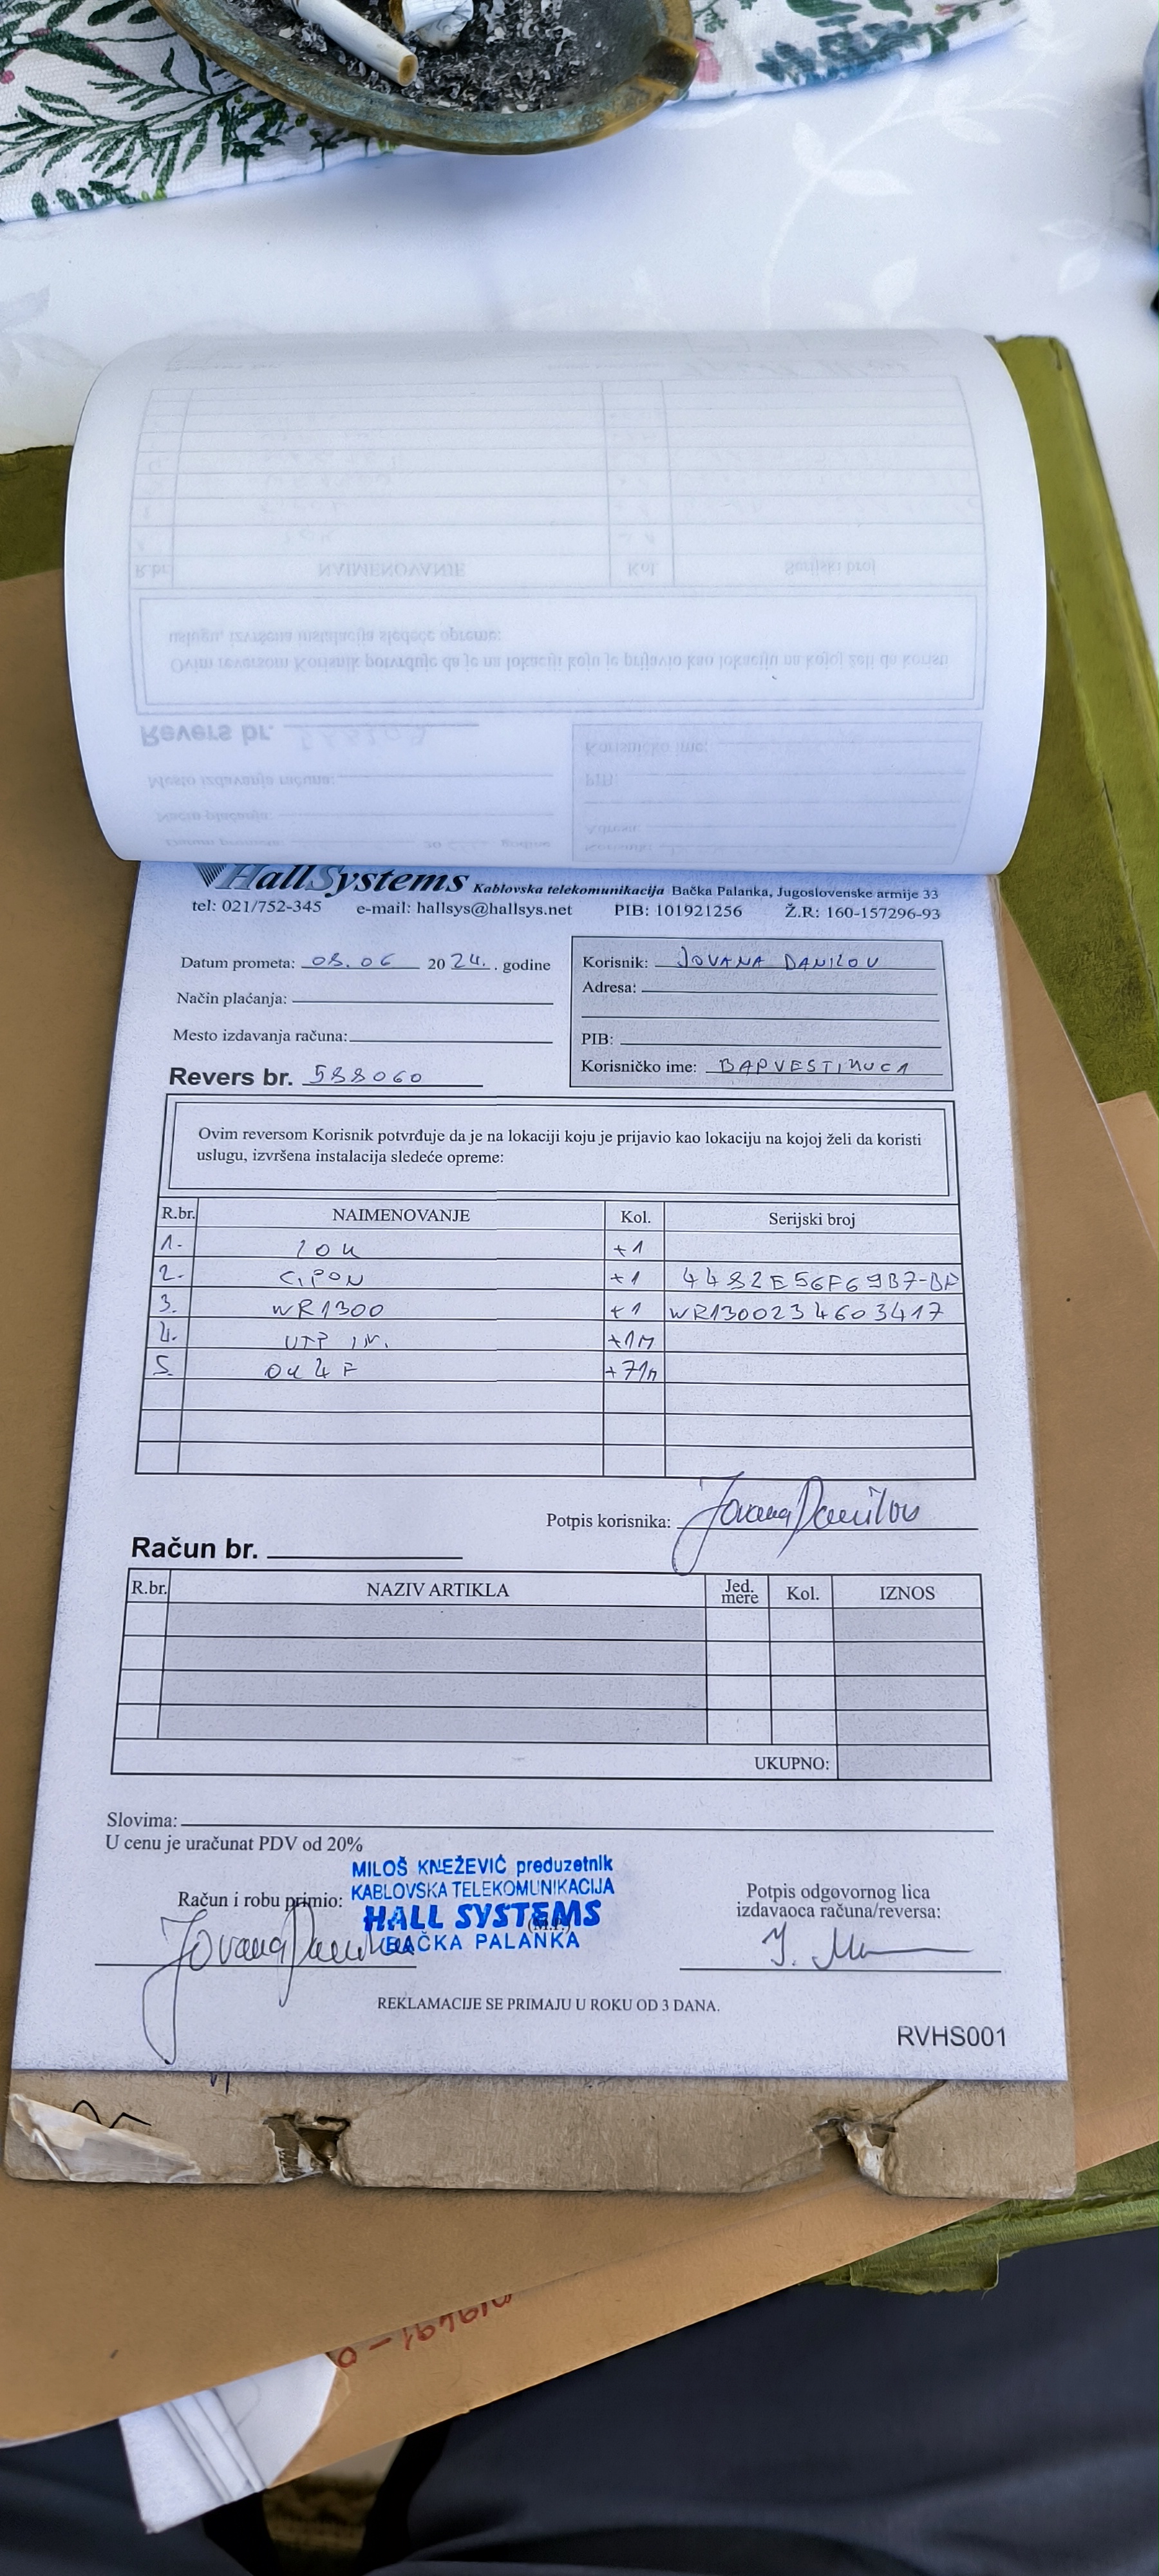 HallSystems Kablovska telekomunikacija Bačka Palanka, Jugoslovenske armije 33
tel: 021/752-345 e-mail: hallsys@hallsys.net PIB: 101921256 Ž.R: 160-157296-93
Datum prometa: 08.06 2024. godine
Način plaćanja:
Mesto izdavanja računa:
Revers br. 588060
Korisnik: JOVANA DANILOV
Adresa:
PIB:
Korisničko ime: BAPVESTINUCA
Ovim reversom Korisnik potvrđuje da je na lokaciji koju je prijavio kao lokaciju na kojoj želi da koristi
uslugu, izvršena instalacija sledeće opreme:
R.br. NAIMENOVANJE Kol. Serijski broj
1. ZOK +1
2. GPON +1 4482E56F69B7-BA
3. WR1300 +1 WR1300234603417
4. UTP 1M. +1M
5. OK 4 F +71m
Potpis korisnika: Jovana Danilov
Račun br.
R.br. NAZIV ARTIKLA Jed. mere Kol. IZNOS
UKUPNO:
Slovima:
U cenu je uračunat PDV od 20%
MILOŠ KNEŽEVIĆ preduzetnik
KABLOVSKA TELEKOMUNIKACIJA
HALL SYSTEMS
BAČKA PALANKA
Račun i robu primio:
Jovana Danilov
(M.P.)
Potpis odgovornog lica
izdavaoca računa/reversa:
REKLAMACIJE SE PRIMAJU U ROKU OD 3 DANA.
RVHS001